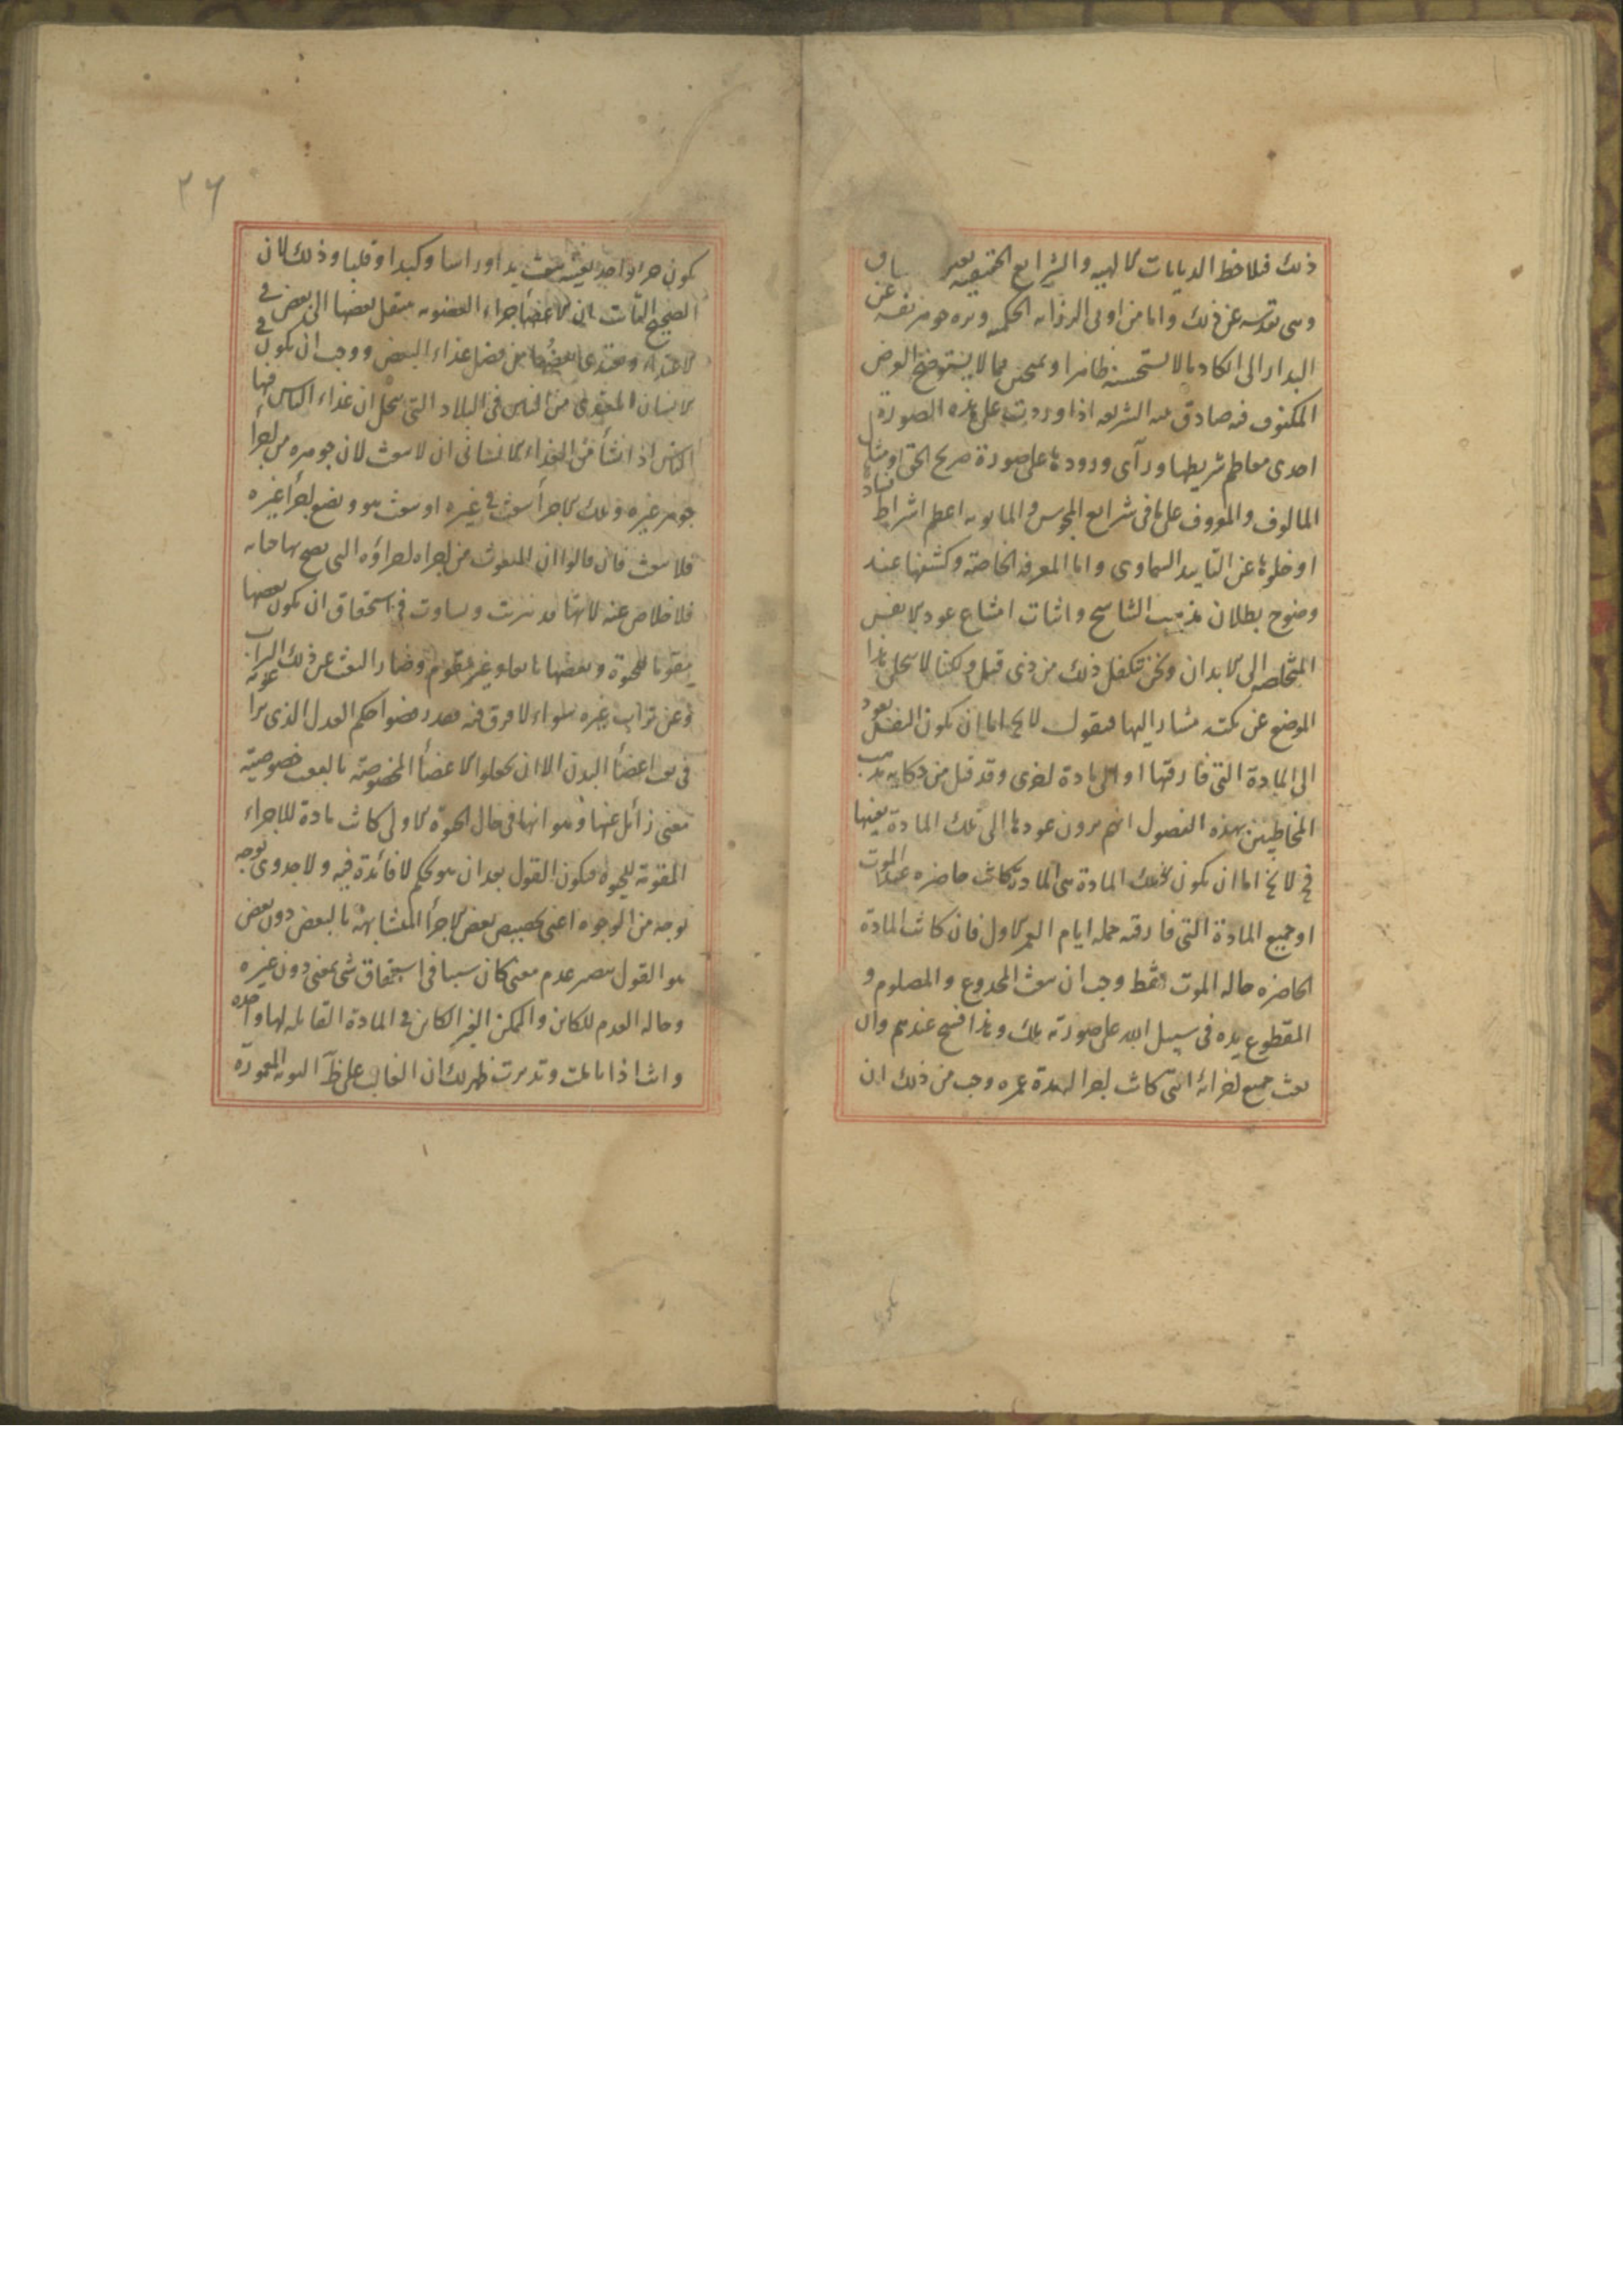 ذلك فلاحظ الديانات الالهيه والشرايع الحقيقيه
وهى تقدسه عن ذلك واما من اولى الرزانه الحكميه ونزه جوهر نفسه عن
البدار الى انكار ما لا يستحسنه ظاهرا او تمحض مما لا يستوضح الغرض
المكنوف فيه صادق له الشريعه اذا وردت على هذه الصورة
احدى معاظم شرايطها ورآى ورودها على صورة صريح الحق او مشابهة
المالوف والمعروف على ما فى شرايع المجوس والمانويه اعظم اشراط فسادها
او خلوها عن التاييد السماوى واما المعرفة الخاصة وكشفها عند
وضوح بطلان مذهب التناسخ واثبات امتناع عود الانفس
المتخلصه الى الابدان ونحن نتكفل ذلك من ذى قبل ولكنا لا نخلى هذا
الموضع عن نكته مشار اليها فنقول لا يخ اما ان يكون النفس يعود
الى المادة التى فارقتها او الى مادة اخرى وقد قيل من حكايه مذهب
المخاطبين بهذه الفصول انهم يرون عودها الى تلك المادة بعينها
فح لا يخ اما ان يكون تلك المادة هى المادة كانت حاضره عند الموت
او جميع المادة التى فارقته جمله ايام العمر الاول فان كانت المادة
الحاضره حاله الموت فقط وجب ان يبعث المجدوع والمصلوم و
المقطوع يده فى سبيل الله على صورته تلك وهذا قبيح عندهم وان
بعث جميع اجزائه التى كانت اجزا له مدة عمره وجب من ذلك ان
٢٦
يكون جزا واحد بعينه يبعث يدا وراسا وكبدا وقلبا وذلك لان
الصحيح الثابت ان الاعضأ اجزاء العضويه ينتقل بعضها الى بعض فى
الاغتذاء ويغتذى بعضها من فضل غذاء البعض ووجب ان يكون
الانسان المغتذى من الناس فى البلاد التى يحكى ان غذاء الناس فيها
الناس اذا نشأ من الغذاء الانسانى ان لا يبعث لان جوهره من اجزا
جوهر غيره وتلك الاجزأ يبعث فى غيره او يبعث هو ويضيع اجزأ غيره
فلا يبعث فان قالوا ان المبعوث من اجزاه اجزاؤه التى يصح بها حياته
فلا خلاص عنه لانها قد تتربت وتساوت فى استحقاق ان يكون بعضها
مقوما للحيوة وبعضها نافعا وغير مقوم وصار البعث عن ذلك التراب
وعن تراب غيره سواء لا فرق فيه
فى بعث اعضأ البدن الا ان يجعلوا للاعضأ المخصوصة بالبعث خصوصية
بمعنى زائل عنها وهو انها فى حال الحيوة الاولى كانت مادة للاجزاء
المقومة للحيوة فيكون القول بعد ان هو تحكم لا فائدة فيه ولا جدوى
بوجه من الوجوه اعنى تخصيص بعض الاجزأ المتشابهة بالبعض دون بعض
هو القول بتصيير عدم معنى كان سببا فى استحقاق شئ بمعنى دون غيره
وحاله العدم للكاين والممكن الغير الكاين فى المادة القابله لها واحده
وانت اذا تاملت وتدبرت ظهر لك ان الغالب على ظاهر التربة المعمورة